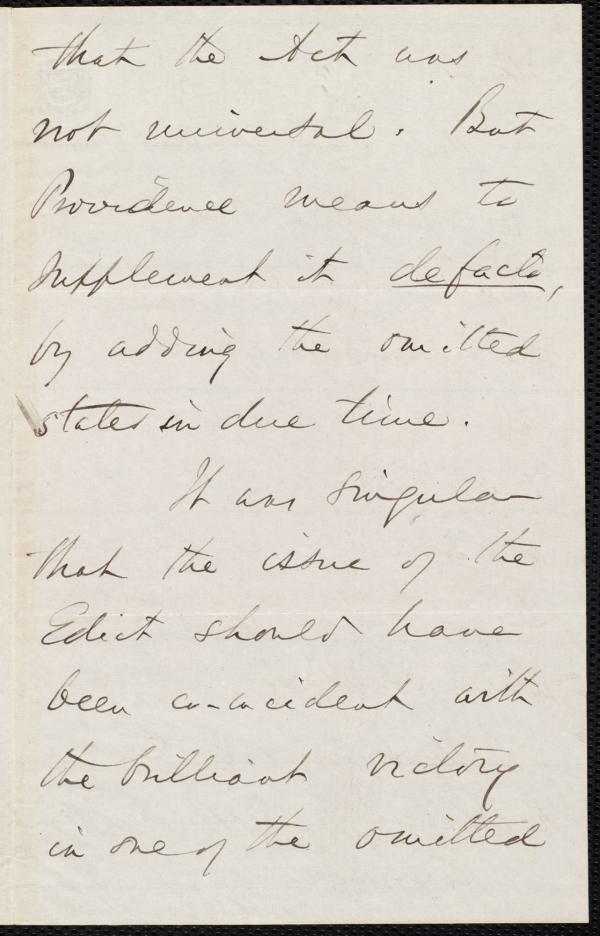 that the Act was
not universal. But
Providence means to
supplement it de facto,
by adding the omitted
states in due time.
It was singular
that the issue of the
Edict should have
been co-incident with
the brilliant victory
in one of the omitted